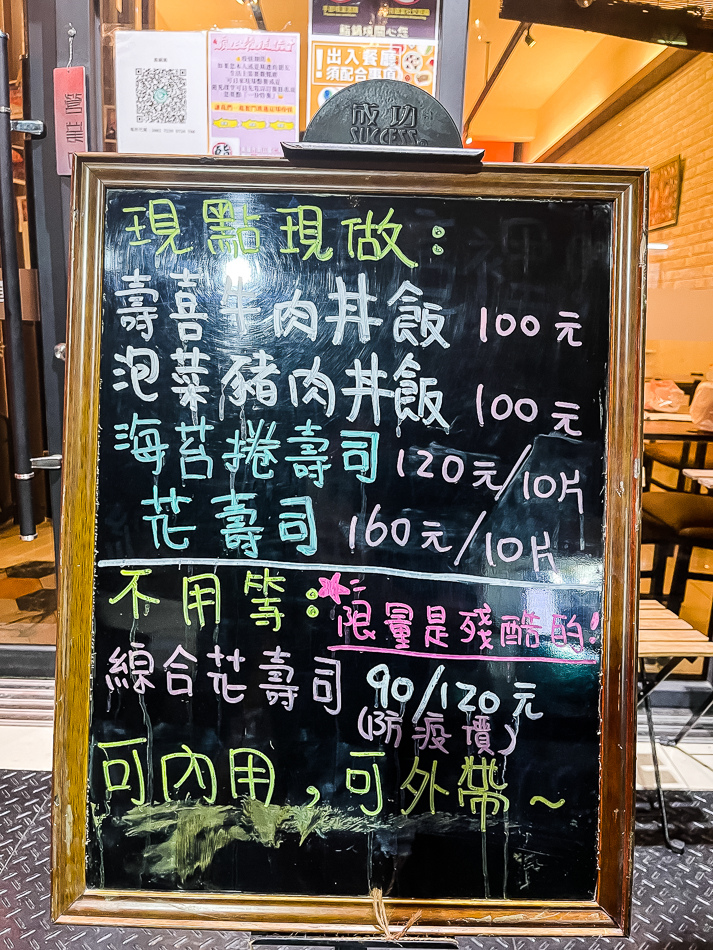 出入餐廳
須配合事
成功
SUCCESS
現點現做：
壽喜牛肉丼飯 100元
泡菜豬肉丼飯 100元
海苔捲壽司 120元/10片
花壽司 160元/10片
不用等：
限量是殘酷的!
綜合花壽司 90/120元
(防疫價)
可內用，可外帶~